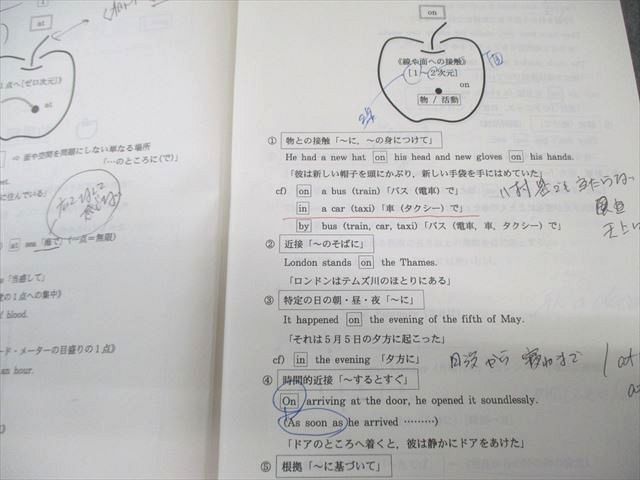 at
at
1点へ[ゼロ次元]》
⇨ 面や空間を問題にしない単なる場所
「…のところに(で)」
に住んでいる」
at sea「海で」(一点=無限)
「当惑して」
度の1点への集中》
of blood.
ード・メーターの目盛りの1点》
an hour.
on
《線や面への接触》
[1～2次元]
on
物 / 活動
線
面
① 物との接触「～に，～の身につけて」
He had a new hat on his head and new gloves on his hands.
「彼は新しい帽子を頭にかぶり，新しい手袋を手にはめていた」
cf) on a bus (train)「バス（電車）で」
in a car (taxi)「車（タクシー）で」
by bus (train, car, taxi)「バス（電車，車，タクシー）で」
② 近接「～のそばに」
London stands on the Thames.
「ロンドンはテムズ川のほとりにある」
③ 特定の日の朝・昼・夜「～に」
It happened on the evening of the fifth of May.
「それは5月5日の夕方に起こった」
cf) in the evening 「夕方に」
日没から 寝るまで
at
④ 時間的近接「～するとすぐ」
On arriving at the door, he opened it soundlessly.
(As soon as he arrived ………)
「ドアのところへ着くと，彼は静かにドアをあけた」
⑤ 根拠「～に基づいて」